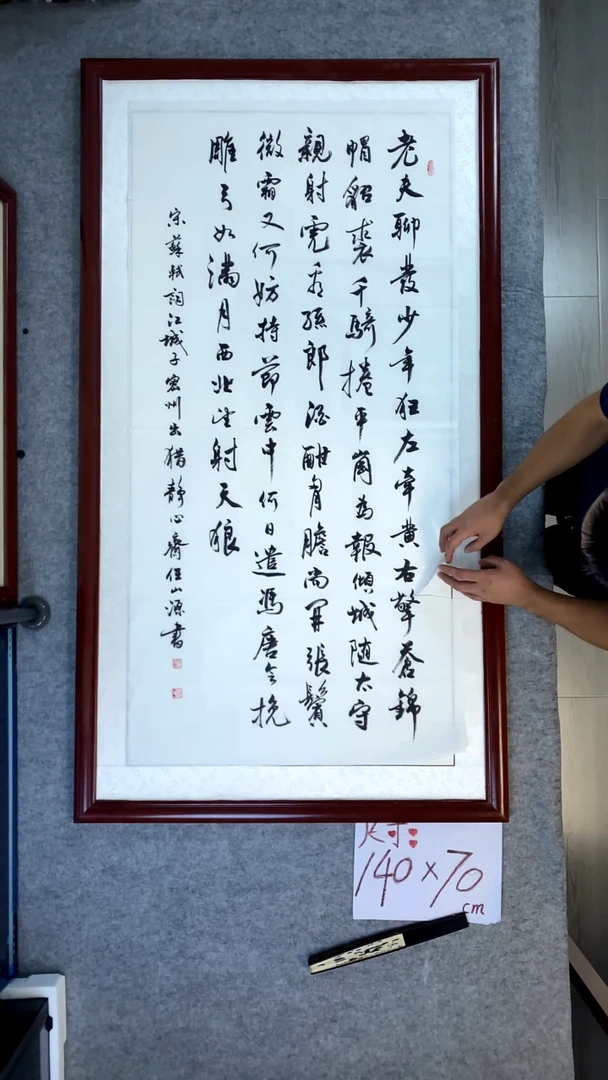 老夫聊發少年狂左牽黃右擎蒼錦
帽貂裘千騎捲平崗為報傾城隨太守
親射虎看孫郎酒酣胷膽尚開張鬢
微霜又何妨持節雲中何日遣馮唐會挽
雕弓如滿月西北望射天狼
宋蘇軾詞江城子密州出猎靜心齋任山源書
尺寸:
140×70
cm